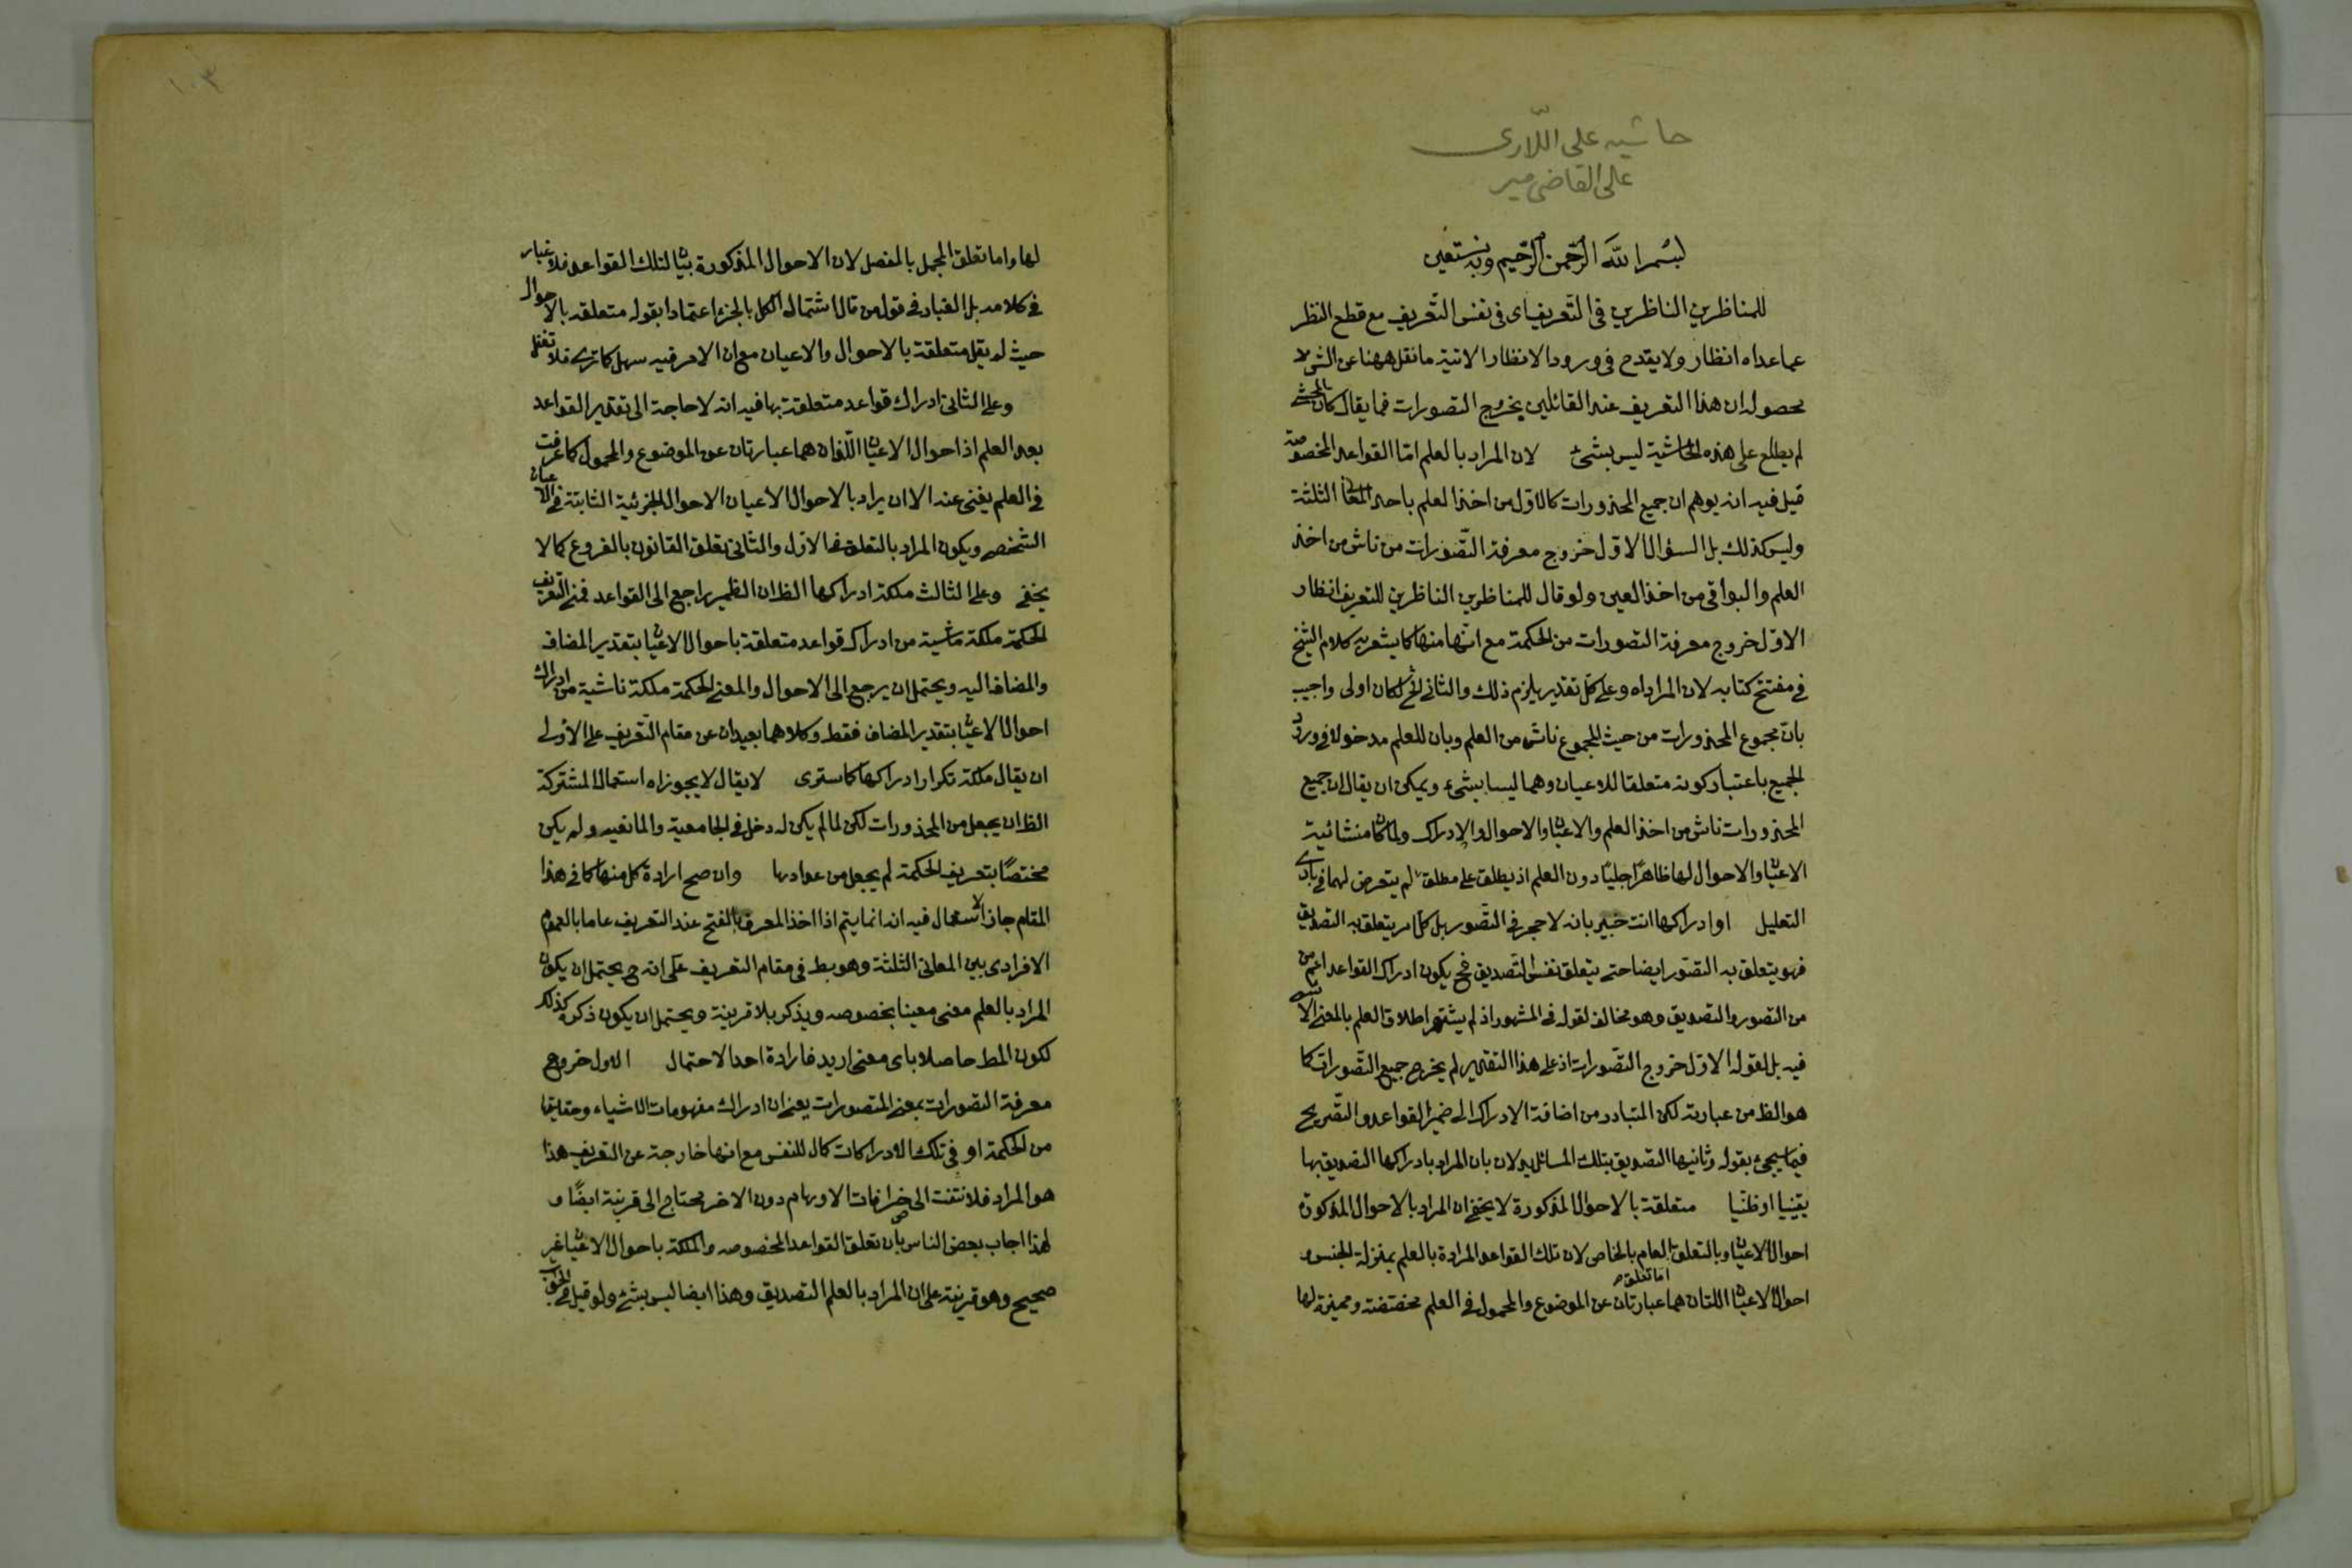 حاشيه على اللّارى
على القاضى مير
بسم الله الرحمن الرحيم وبه نستعين
للمناظرين الناظرين فى التعريف اى فى نفس التعريف مع قطع النظر
عما عداه انظار ولا يقدح فى ورود الانظار الاتية ما نقل ههنا عن الشى لا
بحصول ان هذا التعريف عند القائلين بخروج التصورات فما يقال كان المحشى
لم يطلع على هذه الحاشية ليس بشئ لان المراد بالعلم امّا القواعد المخصوصة
قيل فيه انه يوهم ان جميع المحذورات كالاول من اخذ العلم باحد المعانى الثلثة
وليس كذلك بل السؤال الاول خروج معرفة التصورات من ناش من اخذ
العلم والبواقى من اخذ العين ولو قال للمناظرين الناظرين للتعريف انظار
الاول خروج معرفة التصورات من الحكمة مع انها منها كما يشعر به كلام الشيخ
فى مفتتح كتابه لان المراد اه وعلى كل تقدير يلزم ذلك والثانى الخ لكان اولى واجيب
بان مجموع المحذورات من حيث المجموع ناش من العلم وبان للعلم مدخولا فى ورود
الجميع باعتبار كونه متعلقا للاعيان وهما ليسا بشئ ويمكن ان يقال ان جميع
المحذورات ناش من اخذ العلم والاعيان والاحوال والادراك ولما كان منشائية
الاعيان والاحوال لها ظاهرا جليا دون العلم اذ يطلق على مطلق لم يتعرض لهما فى بادى
التعليل او ادراكها انت خبير بانه لا حجر فى التصور بل كل امر يتعلق به التصديق
فهو يتعلق به التصور ايضا حتى يتعلق نفس التصديق فح يكون ادراك القواعد اعم من
من التصور والتصديق وهو مخالف لقوله فى المشهور اذ لم يشتهر اطلاق العلم بالمعنى الا
فيه بل لقوله الاول خروج التصورات اذ على هذا التقدير لم يخرج جميع التصورات كما
هو الظ من عبارته لكن المتبادر من اضافة الادراك الى ضمير القواعد والتصريح
فيما سيجئ بقوله وثانيها التصديق بتلك المسائل يدلان بان المراد بادراكها التصديق بها
يقينيا او ظنيا متعلقة بالاحوال المذكورة لا يخفى ان المراد بالاحوال المذكورة
احوال الاعيان وبالتعلق العام بالخاص لان تلك القواعد المرادة بالعلم بمنزلة الجنس و
اما تعلق
احوال الاعيان اللتان هما عبارتان عن الموضوع والمحمول فى العلم مختصة ومميزة لها
١٠٣
لها واما تعلق المجمل بالمفصل لان الاحوال المذكورة بيان لتلك القواعد فلا غبار
فى كلامه بل الغبار فى قول من قال اشتمال الكل بالجزء اعتمادا بقوله متعلقه بالاحوال
حيث لم يقل متعلقة بالاحوال والاعيان مع ان الامر فيه سهل كما ترى فلا تغفل
وعلى الثانى ادراك قواعد متعلقة بها فيه انه لا حاجة الى تقدير القواعد
بعد العلم اذ احوال الاعيان اللذان هما عبارتان عن الموضوع والمحمول كما عرفت
فى العلم يغنى عنه الا ان يراد بالاحوال الاعيان الاحوال الجزئية الثابتة فى الاعيان
الشخص ويكون المراد بالتعلق فى الاول والثانى تعلق القانون بالفروع كما لا
يخفى وعلى الثالث ملكة ادراكها الظ ان الضمير راجع الى القواعد فمعنى التعريف
الحكمة ملكة ناشية من ادراك قواعد متعلقة باحوال الاعيان بتقدير المضاف
والمضاف اليه ويحتمل ان يرجع الى الاحوال والمعنى الحكمة ملكة ناشية من ادراك
احوال الاعيان بتقدير المضاف فقط وكلاهما بعيدان عن مقام التعريف على الاولى
ان يقال ملكة تكرار ادراكها كما سترى لا يقال لا يجوز اه استعمال المشتركة
الظ ان يجعل من المحذورات لكن لما لم يكن له دخل فى الجامعية والمانعية ولم يكن
مختصا بتعريف الحكمة لم يجعل من عدادها وان صح ارادة كل منها كما فى هذا
المقام جاز استعمال فيه انه انما يتم اذا اخذ المعرف بالفتح عند التعريف عاما بالعموم
الافرادى بين المعانى الثلثة وهو بط فى مقام التعريف على انه ح يحتمل ان يكون
المراد بالعلم معنى معينا بخصوصه ويذكر بلا قرينة ويحتمل ان يكون ذكره كذلك
لكون المط حاصلا باى معنى اريد فارادة احد الاحتمال الاول خروج
معرفة التصورات بمعنى المتصورات يعنى ان ادراك مفهومات الاشياء وحقايقها
من الحكمة او فى تلك الادراكات كمال للنفس مع انها خارجة عن التعريف هذا
هو المراد فلا تلتفت الى خرافات الاوهام دون الاخر محتاج الى قرينة ايضا و
لهذا اجاب بعض الناس بان تعلق القواعد المخصوصه والملكة باحوال الاعيان غير
صحيح وهو قرينة على ان المراد بالعلم التصديق وهذا ايضا ليس بشئ ولو قيل فى الجواب